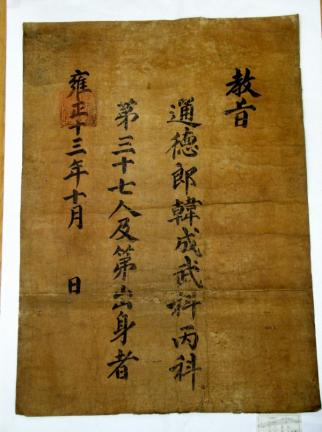 教旨
通德郎韓成武科丙科
第三十七人及第出身者
雍正十三年十月　日